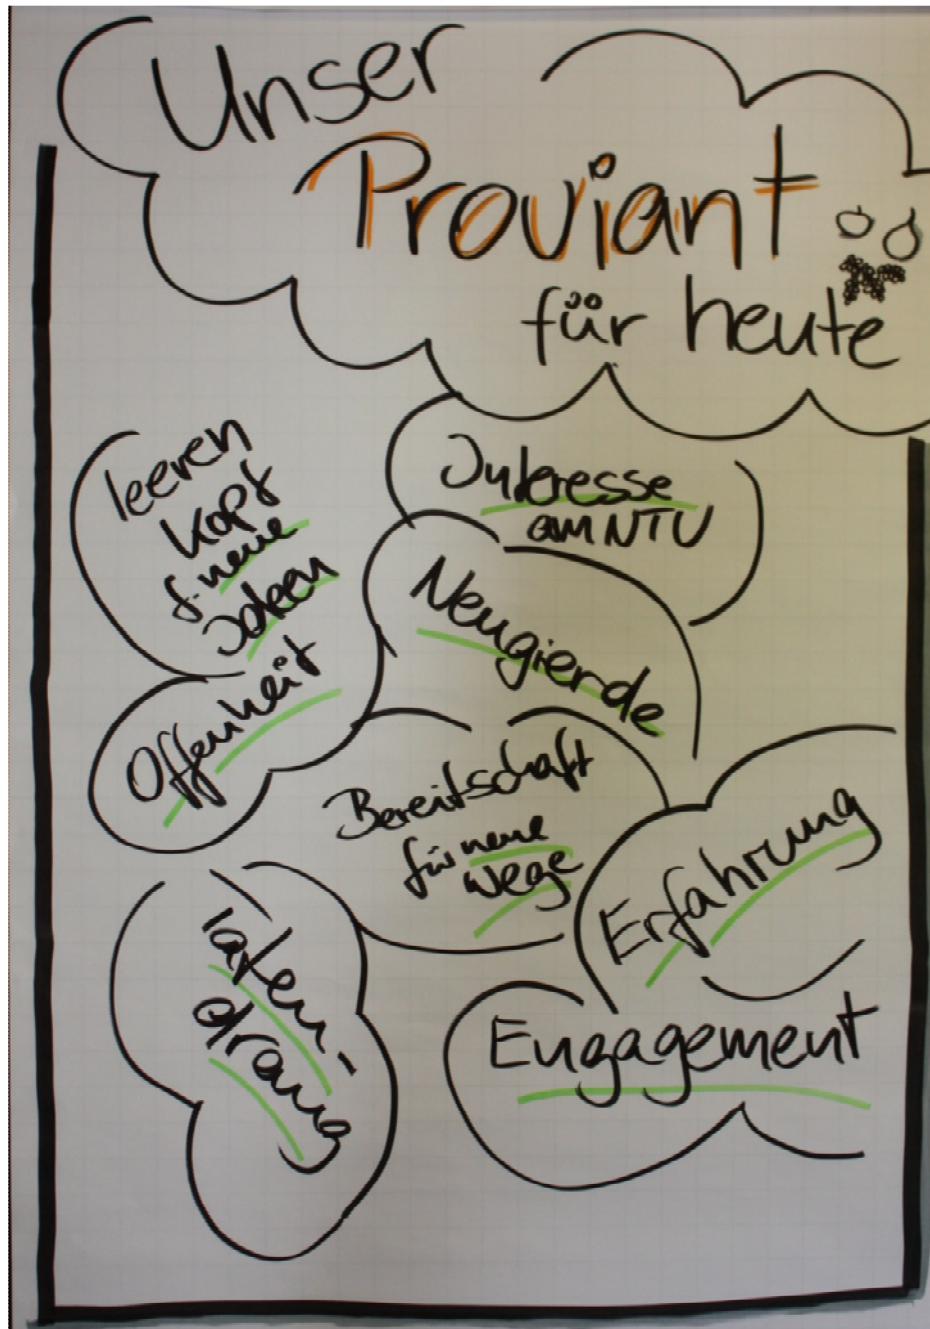 Unser
Proviant
für heute
leeren
Kopf
f. neue
Ideen
Interesse
am NTU
Neugierde
Offenheit
Bereitschaft
für neue
Wege
Erfahrung
Taten-
drang
Engagement